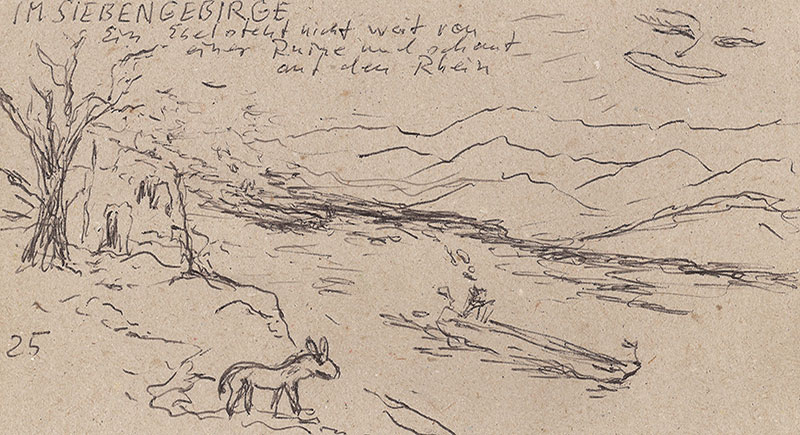 IM SIEBENGEBIRGE
Ein Esel steht nicht weit von
einer Ruine und schaut
auf den Rhein
25